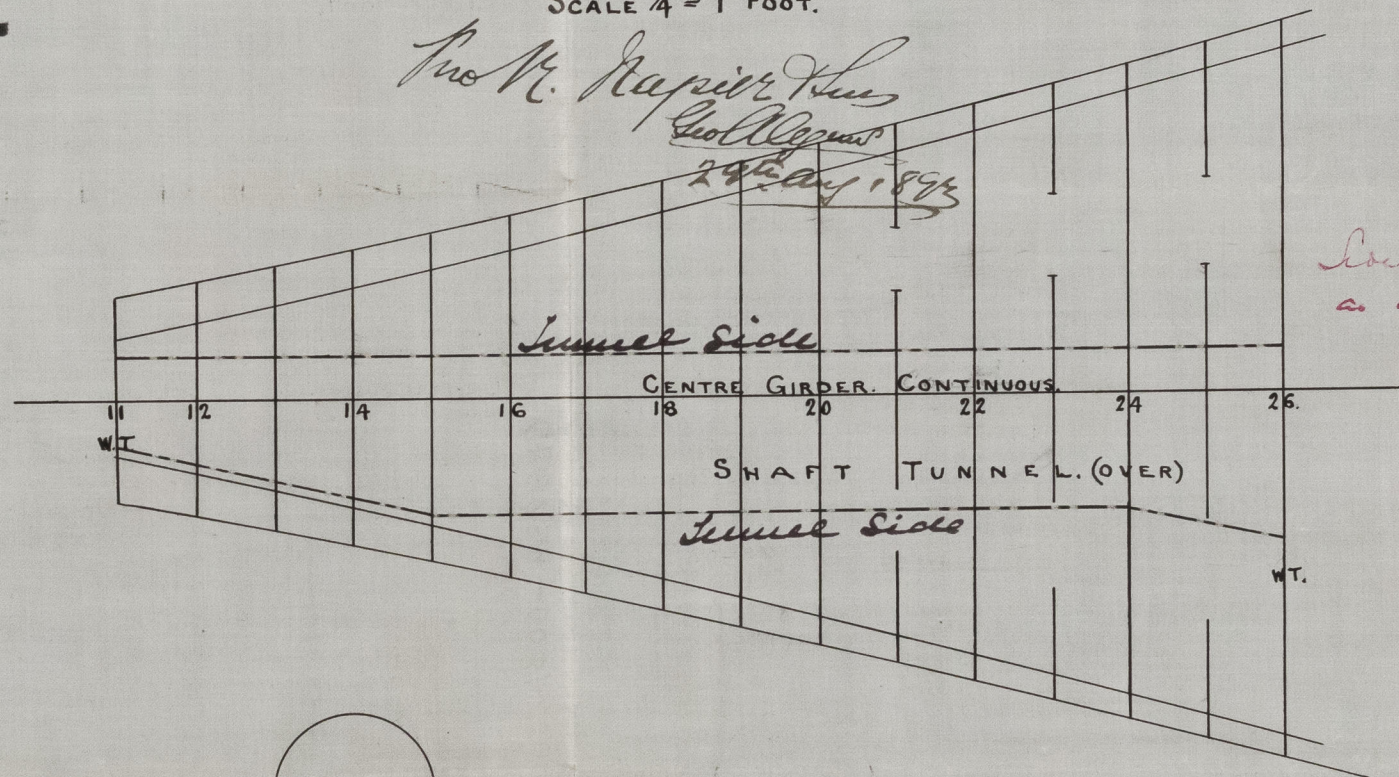 SCALE ¼" = 1 FOOT.
R. Napier & Sons
29th Aug 1893
Tunnel Side
CENTRE GIRDER. CONTINUOUS.
11 12 14 16 18 20 22 24 26.
W.T
SHAFT TUNNEL. (OVER)
Tunnel Side
W.T.